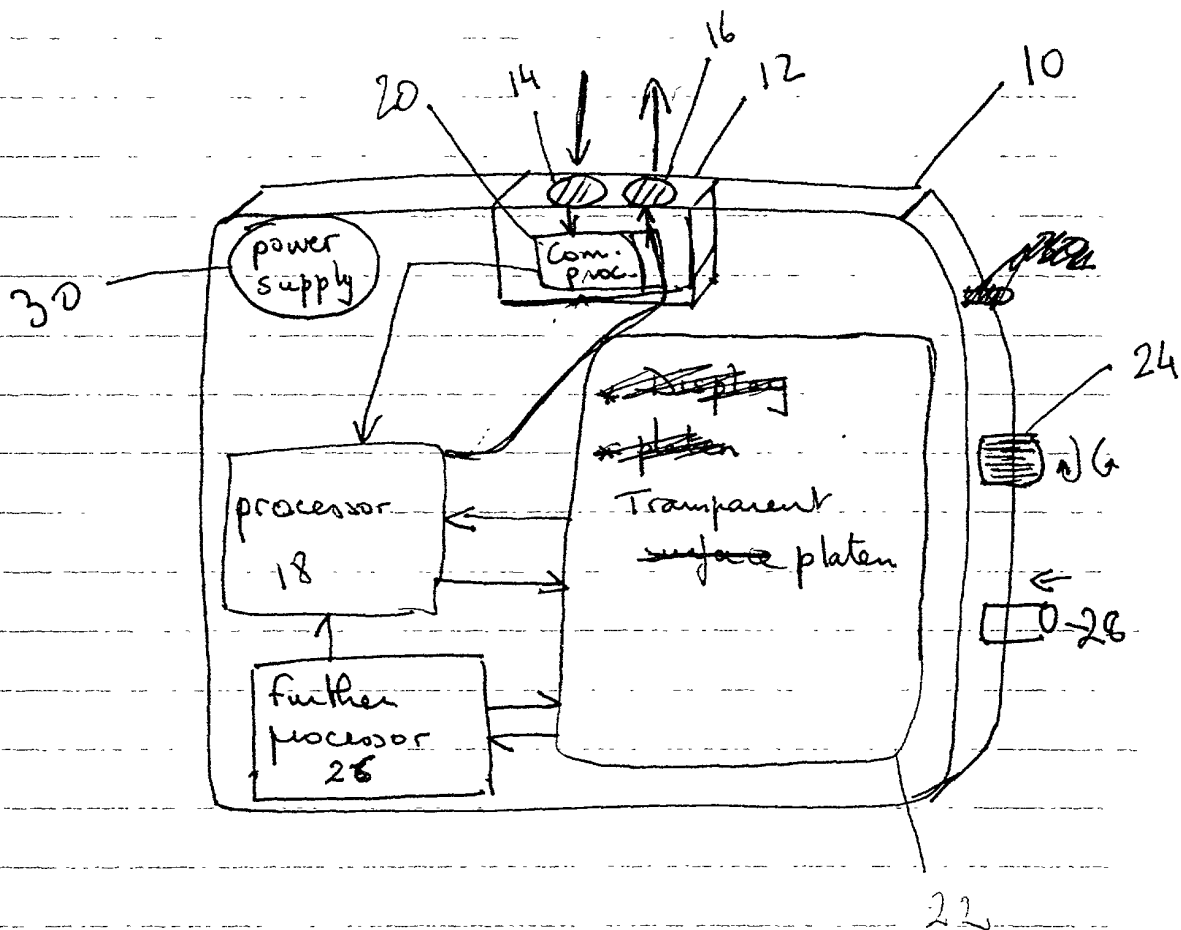 16
14
12
10
20
power
supply
Com.
proc.
30
24
Display
platen
Transparent
surface platen
processor
18
28
Further
processor
26
22